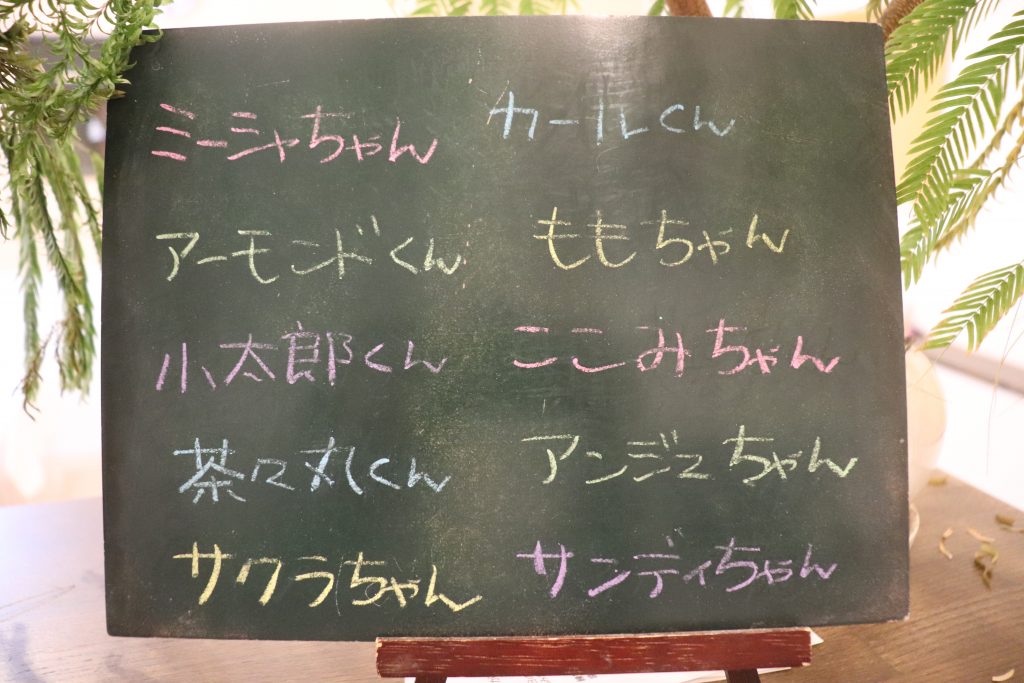 ミーシャちゃん
カールくん
アーモンドくん
ももちゃん
小太郎くん
ここみちゃん
茶々丸くん
アンジュちゃん
サクラちゃん
サンディちゃん